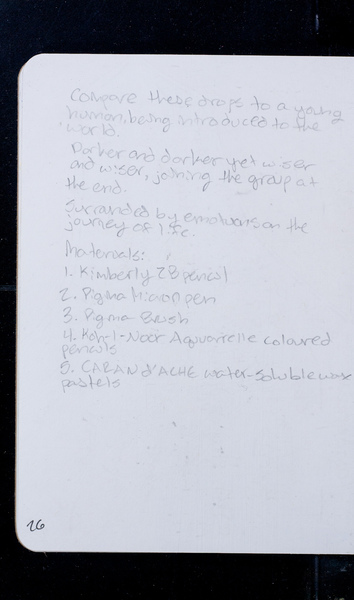 Compare these drops to a young
human, being introduced to the
world.
Darker and darker yet wiser
and wiser, joining the group at
the end.
Surranded by emotions on the
journey of life.
Materials:
1. Kimberly 2B pencil
2. Pigma Micron pen
3. Pigma Brush
4. Koh-I-Noor Aquarelle coloured
pencils
5. CARAN d'ACHE water-soluble wax
pastels
26